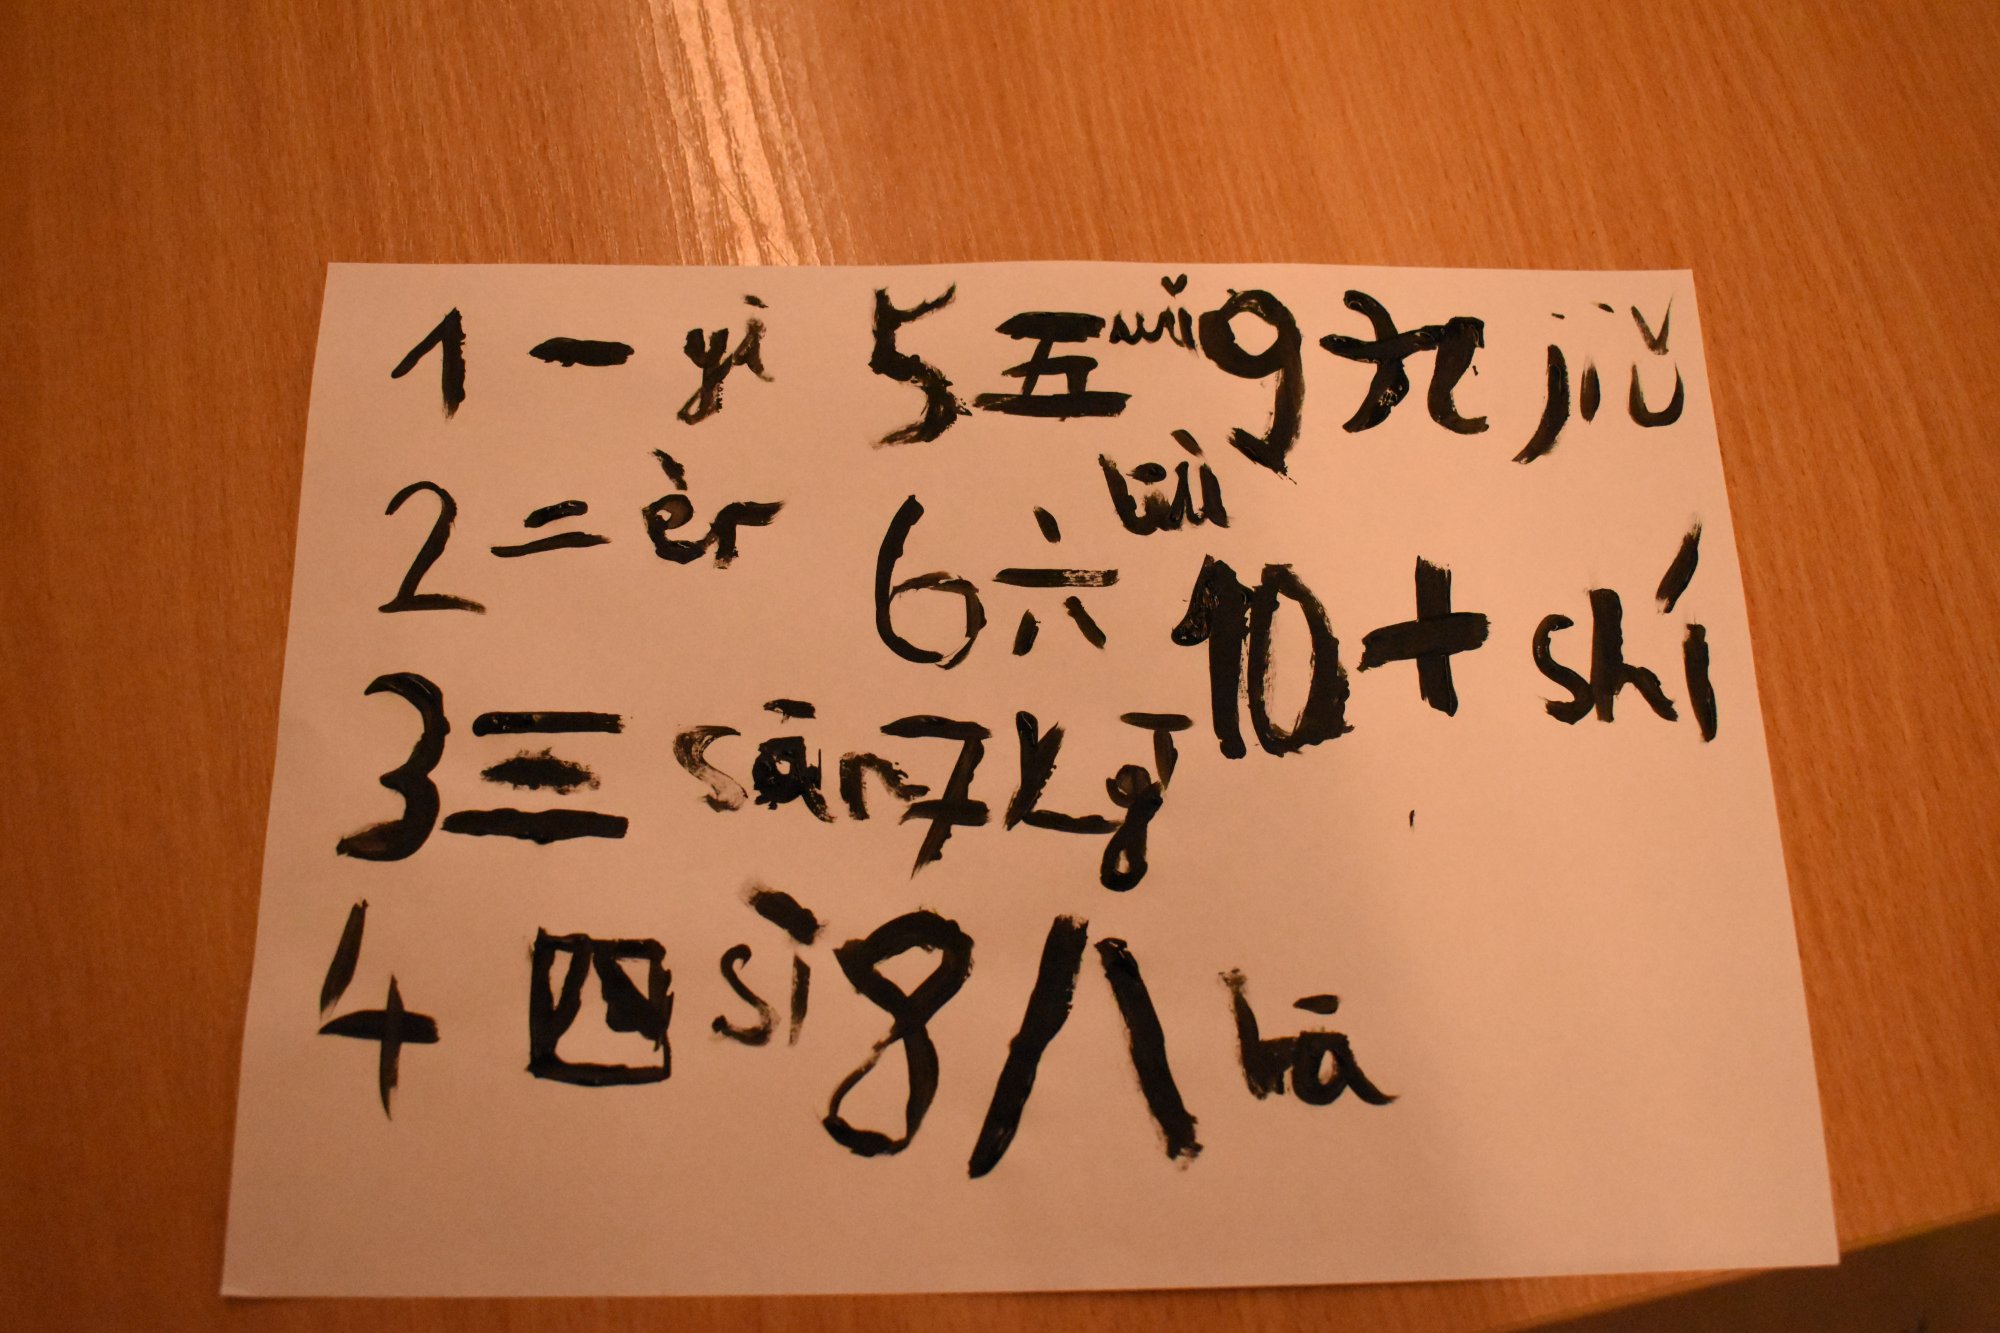 1 一 yī
2 二 èr
3 三 sān
4 四 sì
5 五 wǔ
6 六 liù
7 七 qī
8 八 bā
9 九 jiǔ
10 十 shí